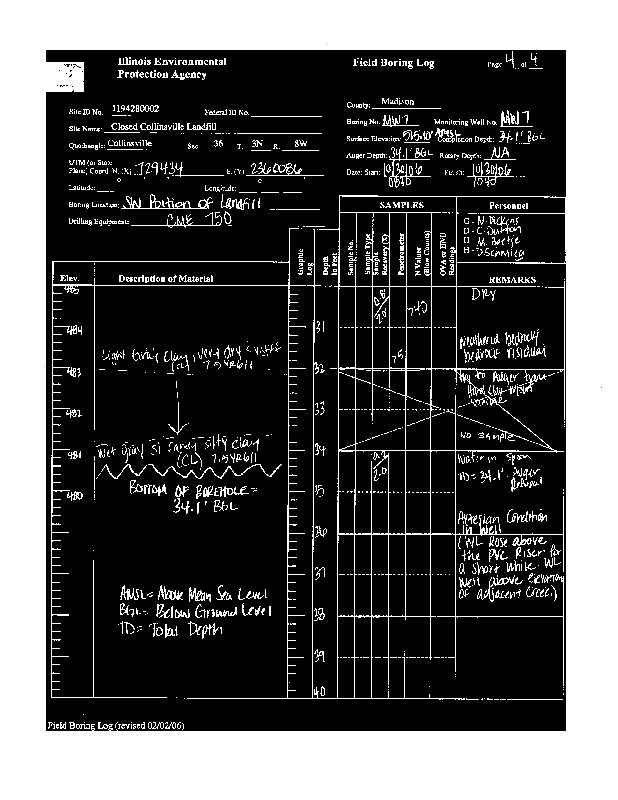 Illinois Environmental
Protection Agency
Field Boring Log
Page 4 of 4
Site ID No. 1194280002 Federal ID No.
County: Madison
Boring No. MW7 Monitoring Well No. MW7
Site Name: Closed Collinsville Landfill
Surface Elevation: 515.10' AMSL Completion Depth: 34.1' BGL
Quadrangle: Collinsville Sec. 36 T. 3N R. 8W
Auger Depth: 34.1' BGL Rotary Depth: NA
UTM (or State
Plane) Coord. N. (X) 729434 E. (Y) 2360086
Date: Start: 10/30/06 Finish: 10/30/06
0840 1040
Latitude: ° Longitude: °
Boring Location: SW Portion of Landfill
Drilling Equipment: CME 750
SAMPLES
Personnel
G - N. Dickens
D - C. Dutton
H - M. Baetje
Graphic
Log
Depth
in Feet
Sample No.
Sample Type
Sample
Recovery (%)
Penetrometer
N Values
(Blow Counts)
OVA or HNU
Readings
Elev.
Description of Material
REMARKS
485
0.8
2.0
740
DRY
484
31
Weathered bedrock/
bedrock residual
Light Gray Clay, very dry
(CL) 7.5YR6/1
75
483
32
482
33
NO Sample
481
34
Wet Gray Si Sandy Silty Clay
(CL) 7.5YR6/1
0.2
2.0
Water in Spoon
TD = 34.1' Auger
Refusal
480
35
BOTTOM OF BOREHOLE =
34.1' BGL
Artesian Condition
in well
36
(WL Rose above
the PVC Riser for
a short while. WL
well above Elevation
of adjacent Creek.)
37
AMSL = Above Mean Sea Level
BGL = Below Ground Level
TD = Total Depth
38
39
40
Field Boring Log (revised 02/02/06)